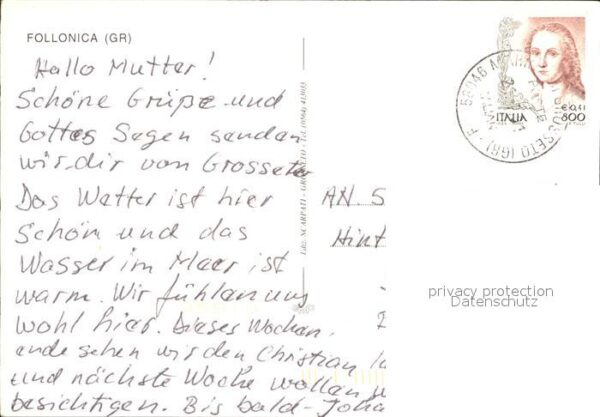 FOLLONICA (GR)
Hallo Mutter!
Schöne Grüße und
Gottes Segen senden
wir dir von Grosseto
Das Wetter ist hier
Schön und das
Wasser im Meer ist
warm. Wir fühlen uns
wohl hier. Dieses Wochen.
ende sehen wir den Christian
und nächste Woche wollen
besichtigen. Bis bald - Joha
Ediz. SCARPATI - GROSSETO - Tel. (0564) 413033
AN. S
Hint
58046
GROSSETO (GR)
ITALIA
€ 0,41
800
privacy protection
Datenschutz